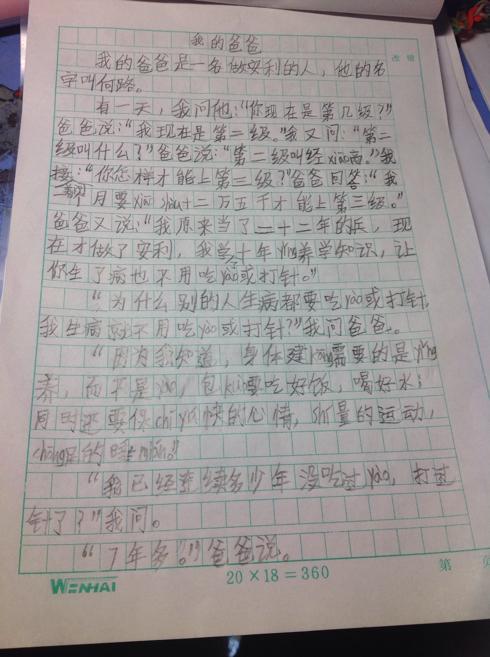 我的爸爸
我的爸爸是一名做安利的人，他的名
字叫何路。
有一天，我问他：“你现在是第几级？”
爸爸说：“我现在是第二级。”我又问：“第二
级叫什么？”爸爸说：“第二级叫经xiāo商。”我
接：“你怎样才能上第三级？”爸爸回答：“我
月要xiāo二万五千才能上第三级。”
爸爸又说：“我原来当了二十二年的兵，现
在才做了安利，我学十年yíng养学知识，让
你生了病也不用吃yào或打针。”
“为什么别的人生病都要吃yào或打针，
我生病不用吃yào或打针？”我问爸爸。
“因为我知道，身体建kāng需要的是yíng
养，而不是yào，包kuò要吃好饭，喝好水；
同时还要保chí愉快的心情，量的运动，
chōng足的睡mián。”
“我已经连续多少年没吃过yào，打过
针了？”我问。
“7年多。”爸爸说。
WENHAI 20×18=360 第 页